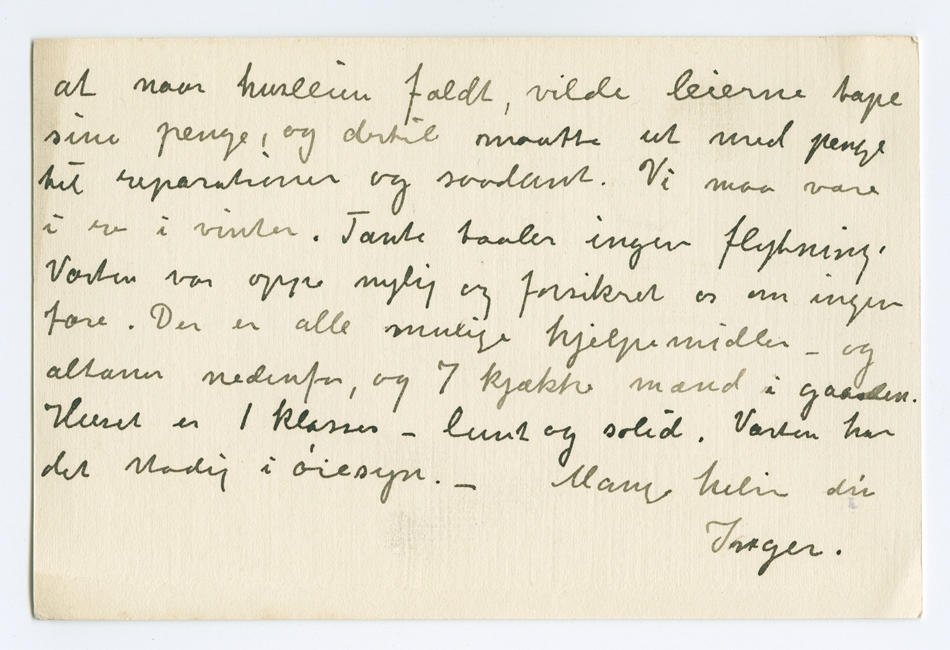 at naar husleien faldt, vilde leierne tape
sine penge, og dertil maatte ut med penge
til reparationer og saadant. Vi maa være
i ro i vinter. Tante taaler ingen flytning.
Værten var oppe nylig og forsikret os om ingen
fare. Der er alle mulige hjelpemidler – og
altaner nedenfor, og 7 kjække mænd i gaarden.
Huset er 1 klasses – lunt og solid. Værten har
det stadig i øiesyn. – Mange hilsn din
Inger.